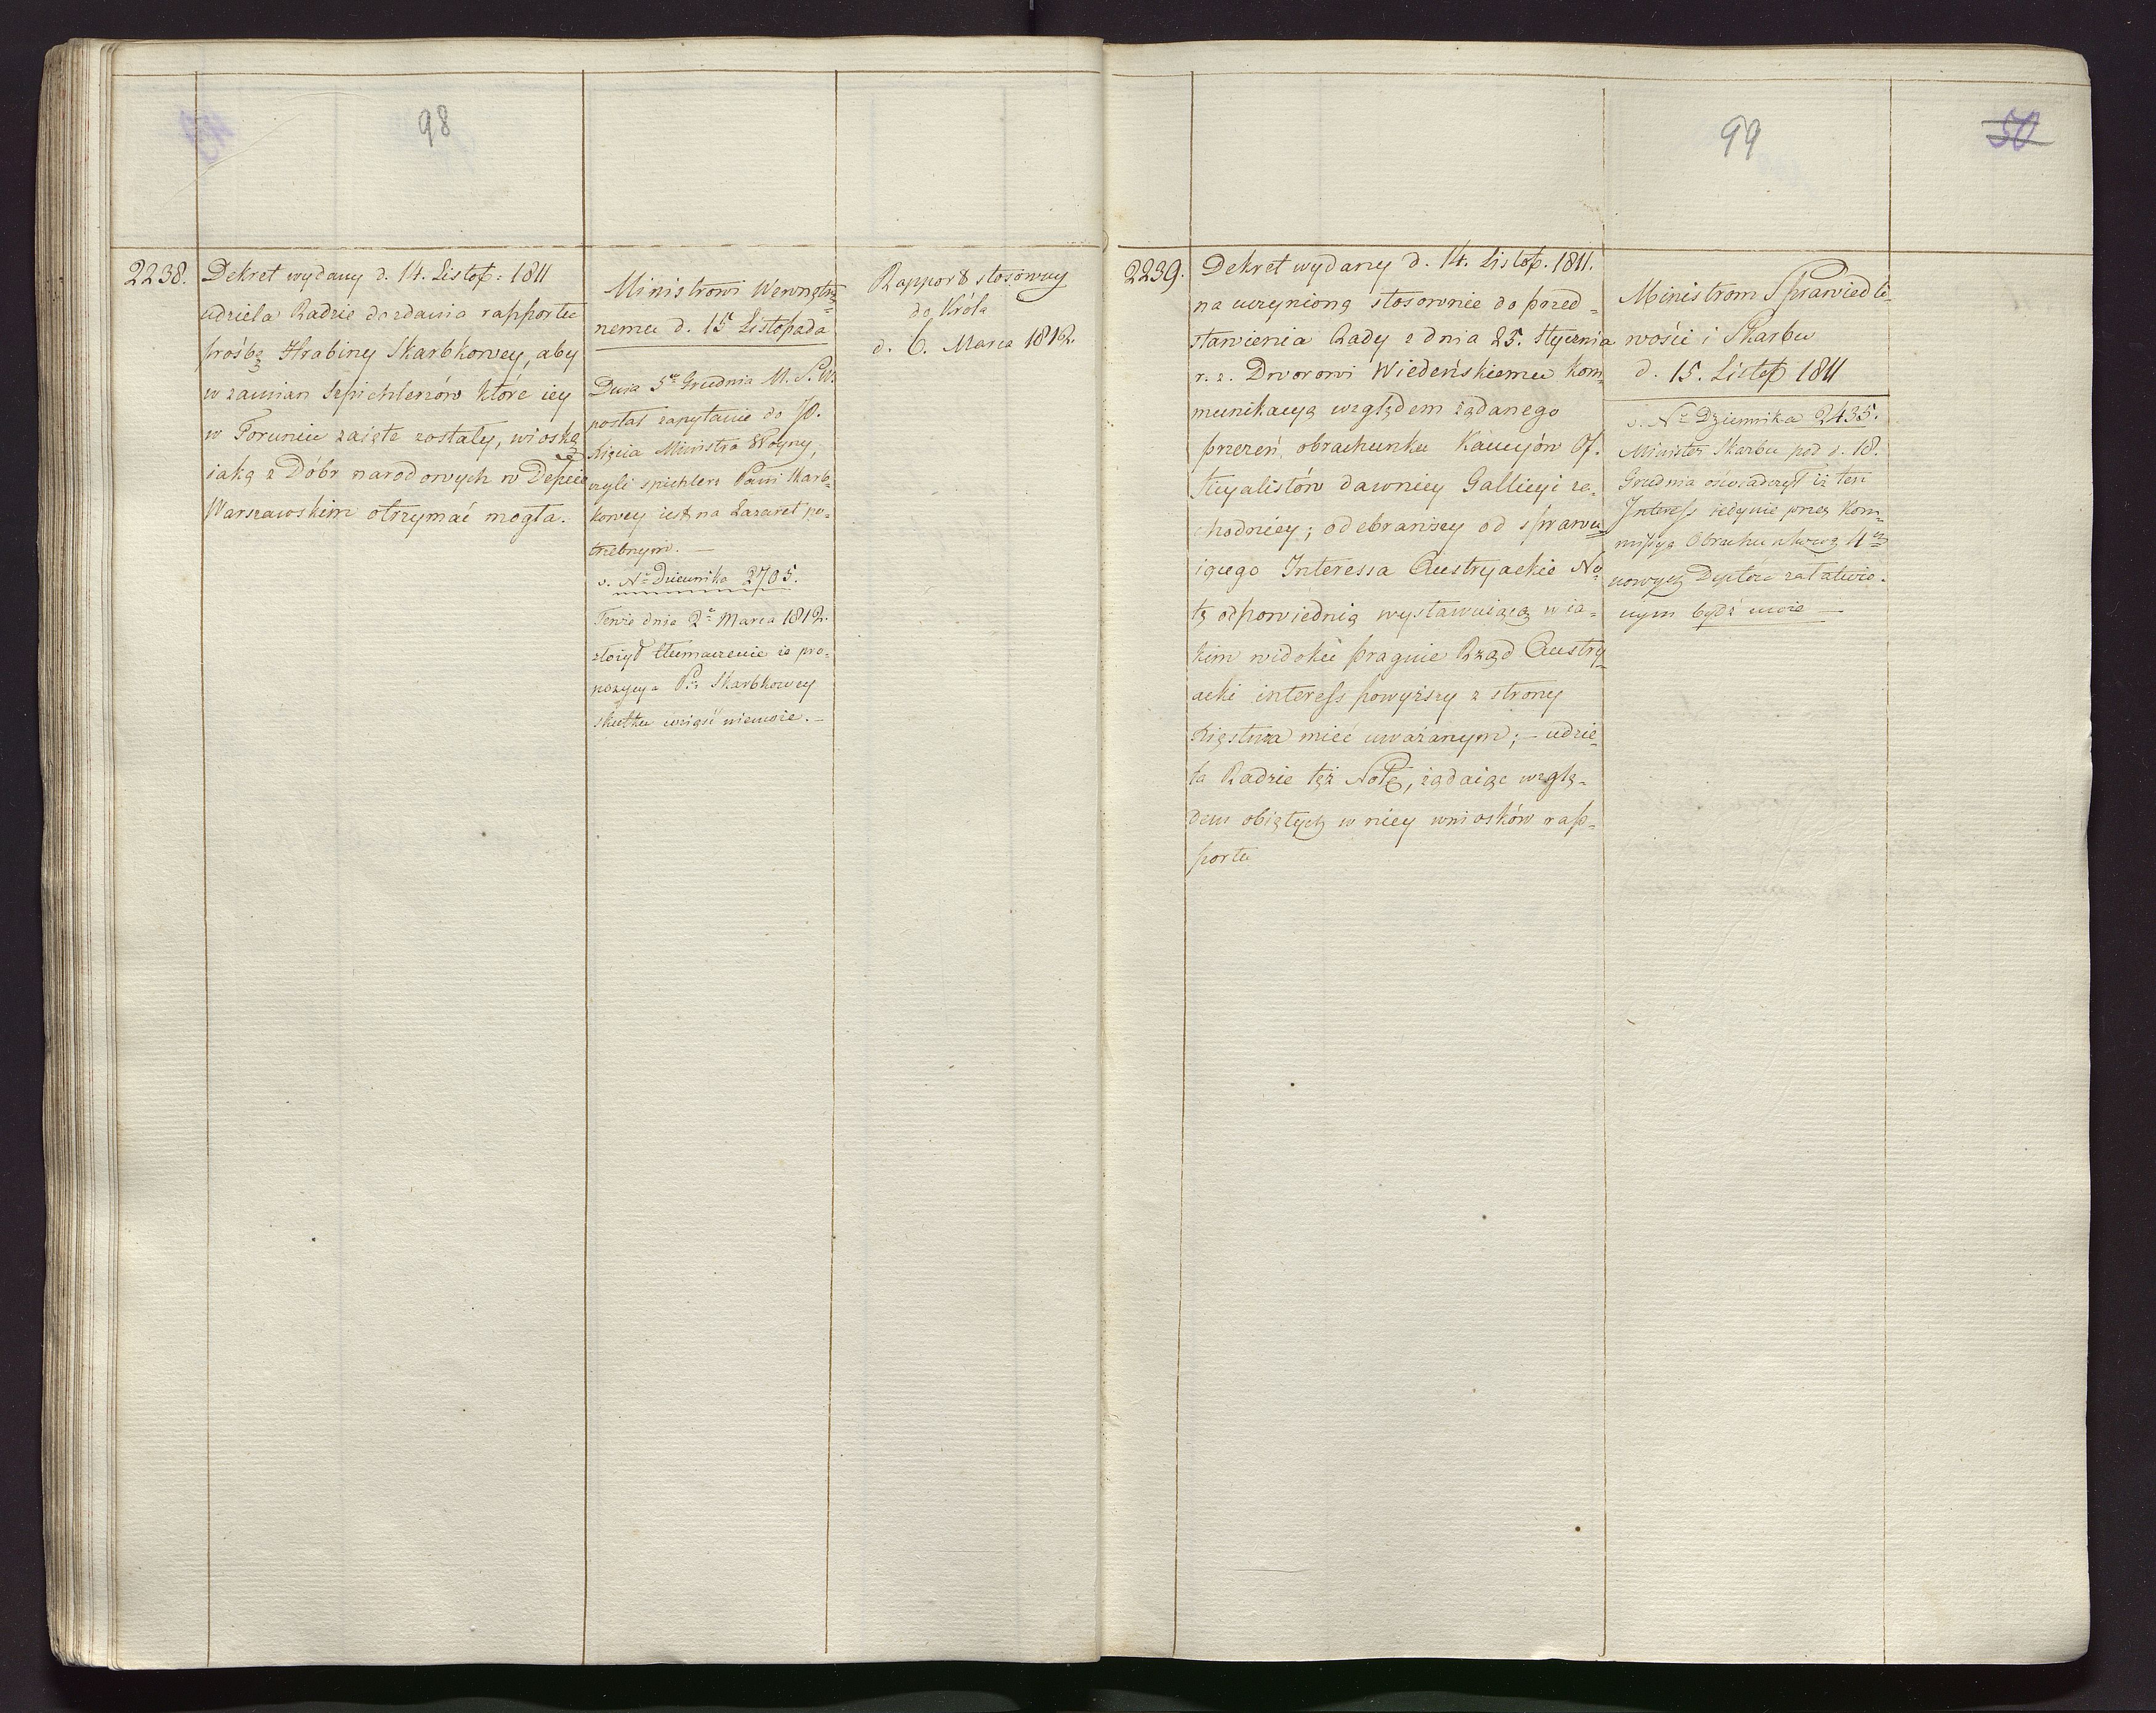 98
2238.
Dekret wydany d. 14. Listop: 1811
udziela Radzie do zdania rapportu
prośbę Hrabiny Skarbkowey, aby
w zamian Szpichlerzów które iey
w Toruniu zaięte zostały, wioskę
iaką z Dóbr narodowych w Depcie
Warszawskim otrzymać mogła.
Ministrowi Wewnętrz=
nemu d. 15 Listopada
Dnia 5go Grudnia M. S. W.
posłał zapytanie do JO.
Xięcia Ministra Woyny,
czyli spichlerz Pani Skarb=
kowey iest na Lazaret po=
trzebnym. —
v. Nr Dziennika 2705.
Tenże dnia 2o Marca 1812.
złożył tłumaczenie że pro=
pozycya Pni Skarbkowey
skutku wziąść niemoże. —
Rapport stosowny
do Króla
d. 6. Marca 1812.
99
50
2239.
Dekret wydany d. 14. Listop. 1811.
na uczynioną stosownie do przed=
stawienia Rady z dnia 25. Stycznia
r. z. Dworowi Wiedeńskiemu kom=
munikacyą względem żądanego
przezeń obrachunku Kaucyów Of=
fficyalistów dawniey Gallicyi za=
chodniey; odebrawszy od sprawu=
iącego Interessa Austryackie No=
tę odpowiednią wystawuiącą w ia=
kim widoku pragnie Rząd Austry=
acki interess powyższy z strony
Xięstwa mieć uważanym; — udzie=
la Radzie tęż Notę, żądaiąc wzglę=
dem obiętych w niey wniosków rap=
portu
Ministrom Sprawiedli=
wości i Skarbu
d. 15. Listop 1811
v. Nr Dziennika 2435.
Minister Skarbu pod d. 18.
Grudnia oświadczył iż ten
Interess iedynie przez Kom=
missyą Obrachunkową 4ch
nowych Dptów załatwio=
nym bydź może —